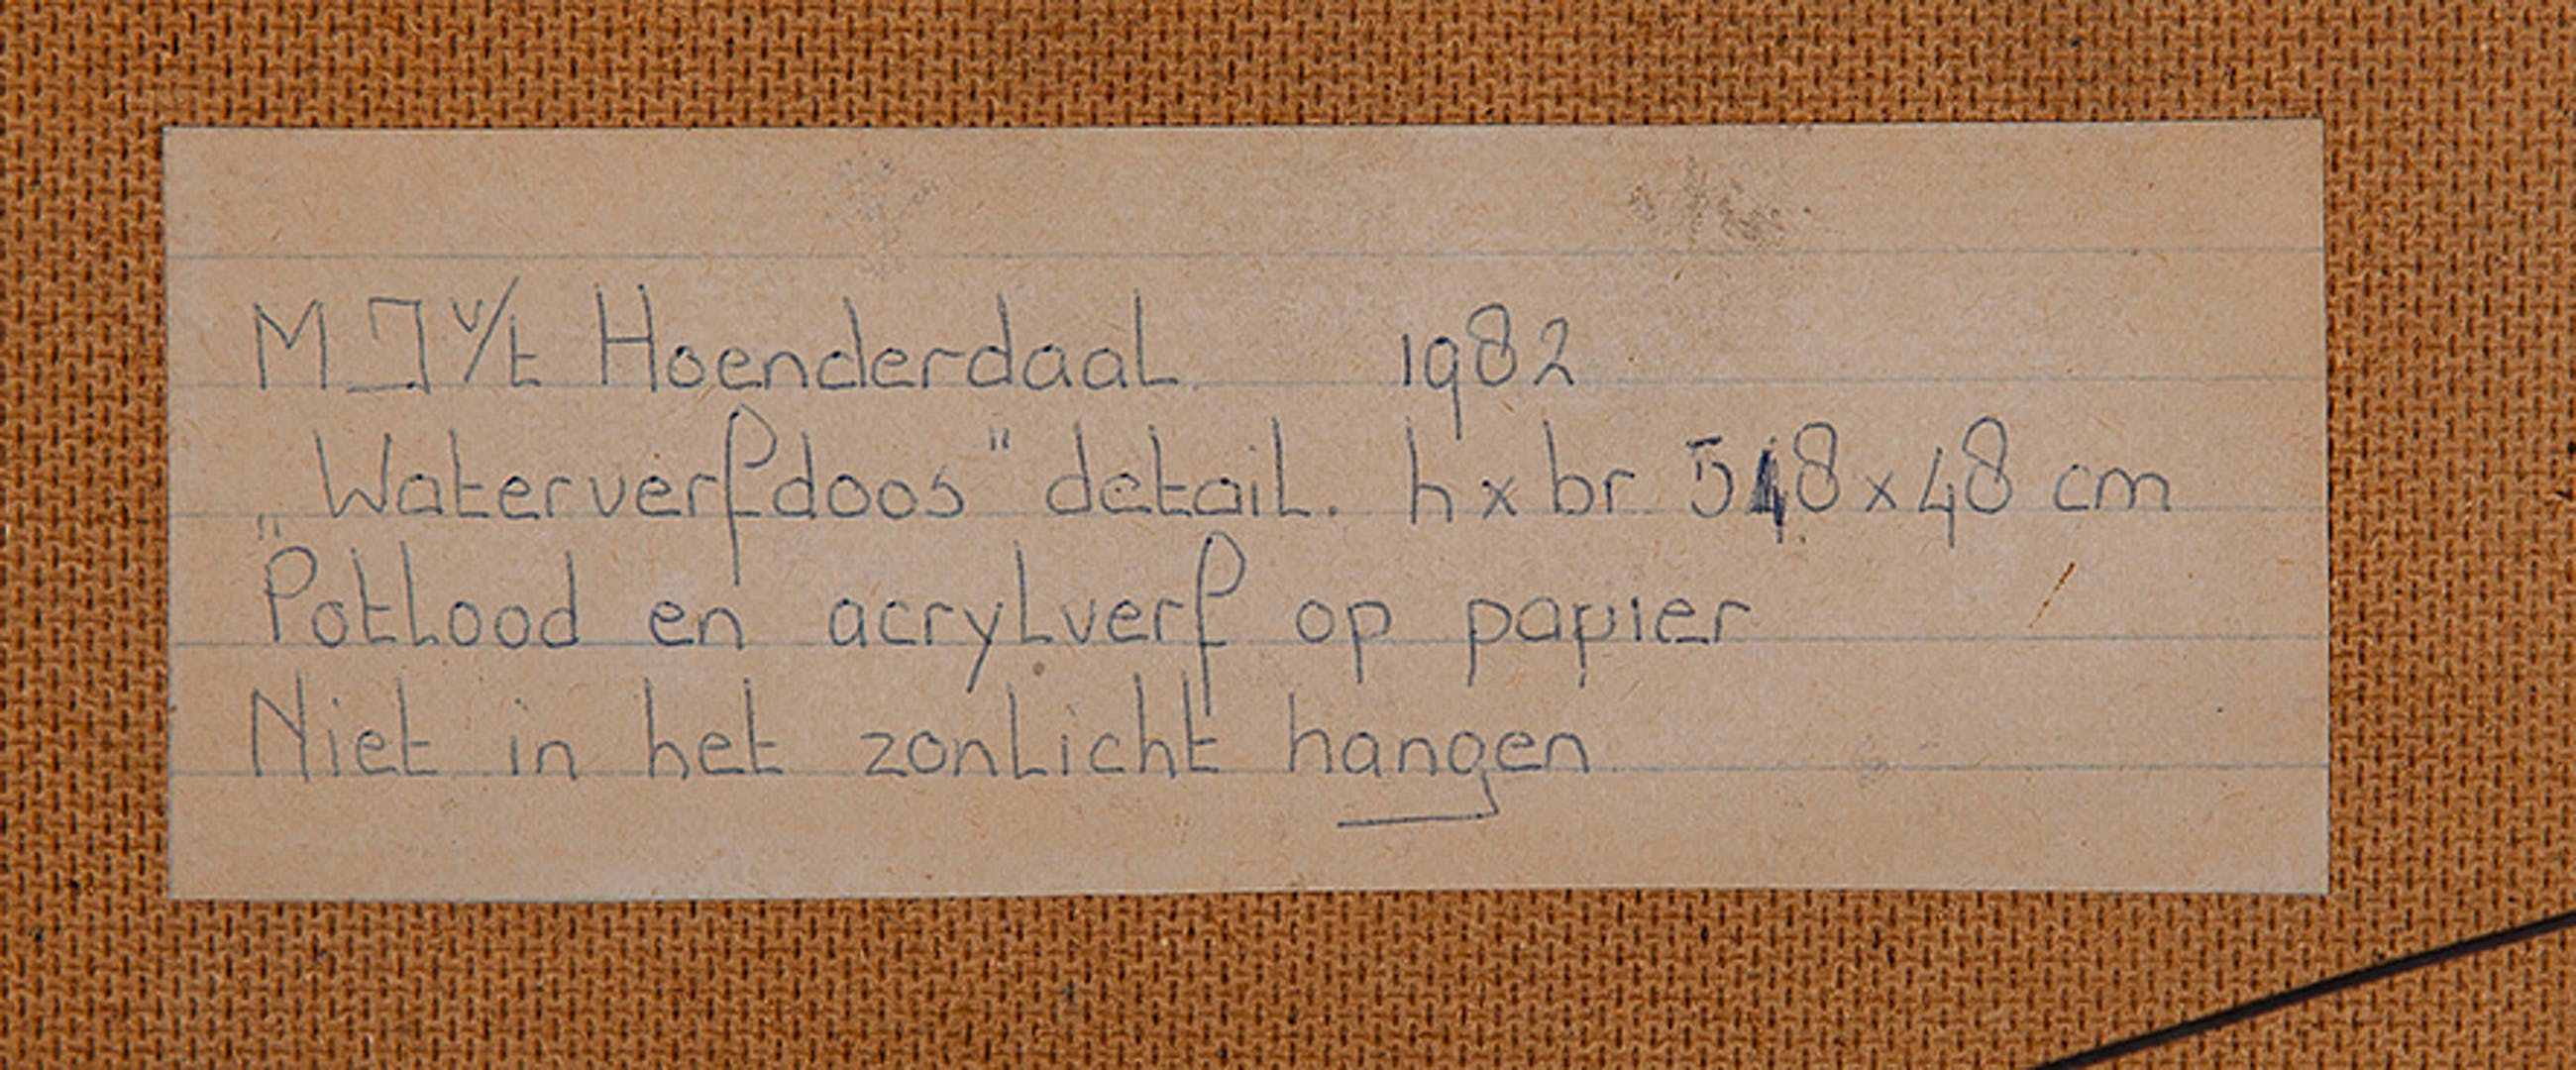 M J v/t Hoenderdaal 1982
„Waterverfdoos" detail. h x br 548 x 48 cm
Potlood en acrylverf op papier
Niet in het zonlicht hangen